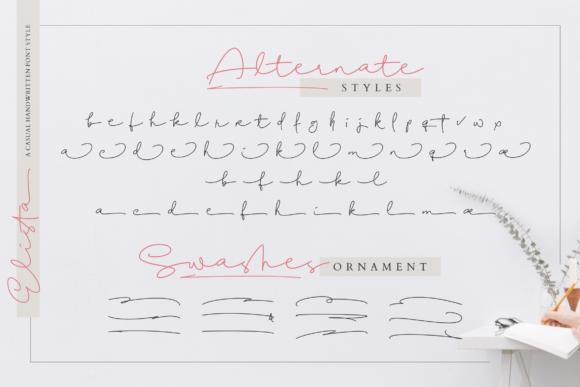 A CASUAL HANDWRITTEN FONT STYLE
Elista
Alternate
STYLES
b e f h k l r t d f g h i j k l p q t v w x
a c d e h i k l m n q u
b f h k l
a c d e f h i k l m
Swashes
ORNAMENT